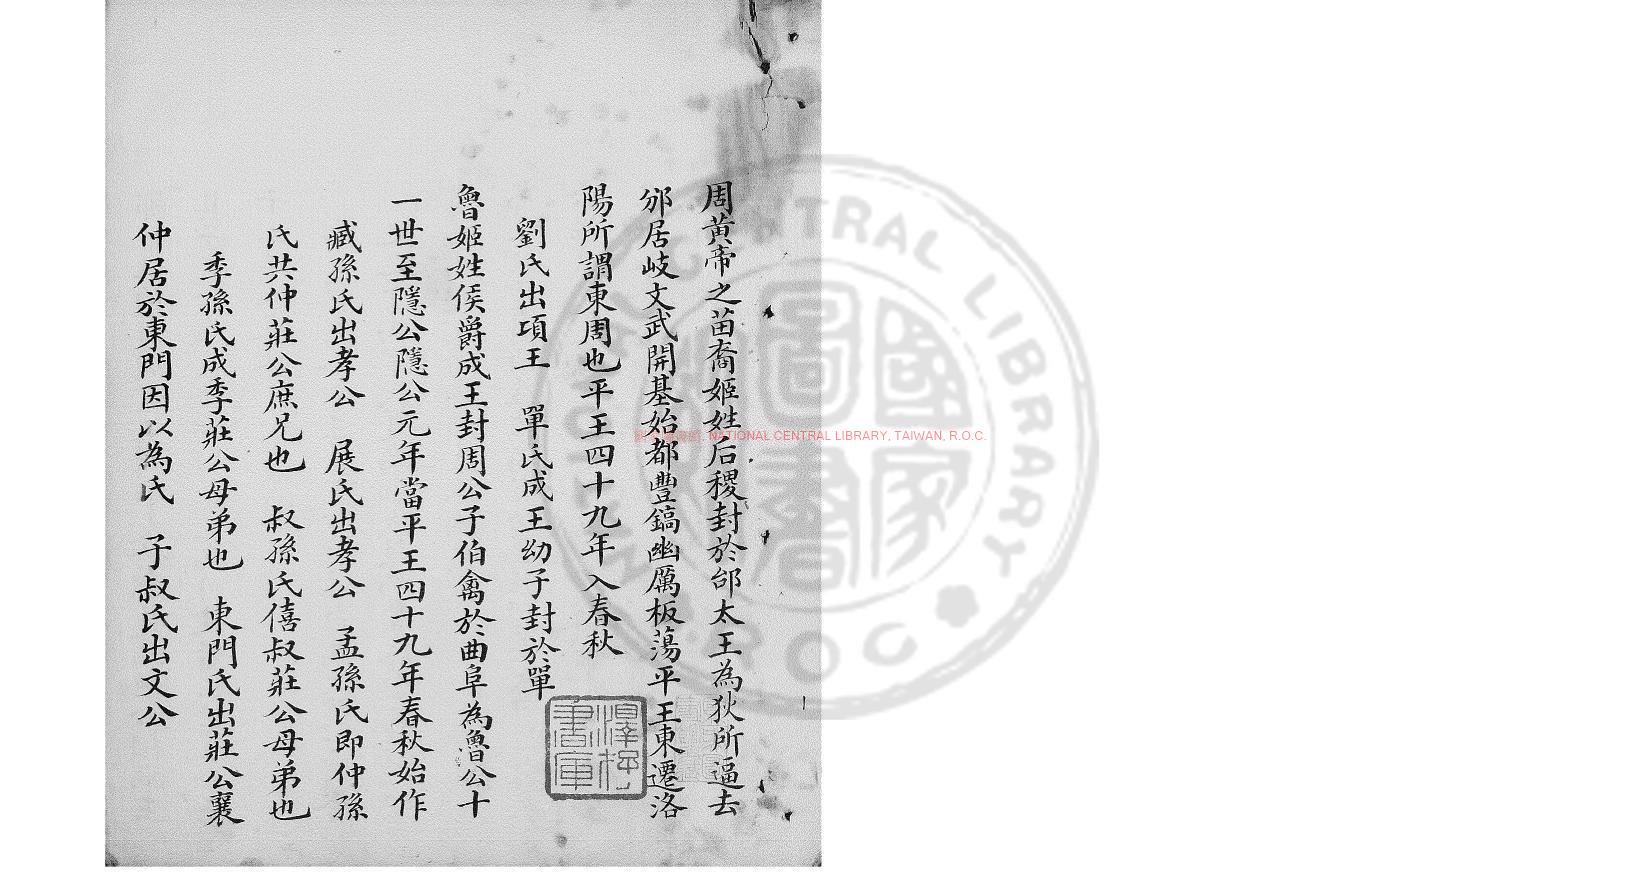 周黄帝之苗裔姬姓后稷封於邰太王為狄所逼去
邠居岐文武開基始都豐鎬幽厲板蕩平王東遷洛
陽所謂東周也平王四十九年入春秋
劉氏出項王　單氏成王幼子封於單
魯姬姓侯爵成王封周公子伯禽於曲阜為魯公十
一世至隱公隱公元年當平王四十九年春秋始作
臧孫氏出孝公　展氏出孝公　孟孫氏即仲孫
氏共仲莊公庶兄也　叔孫氏僖叔莊公母弟也
季孫氏成季莊公母弟也　東門氏出莊公襄
仲居於東門因以為氏　子叔氏出文公
澤存書庫
NATIONAL CENTRAL LIBRARY, TAIWAN, R.O.C.